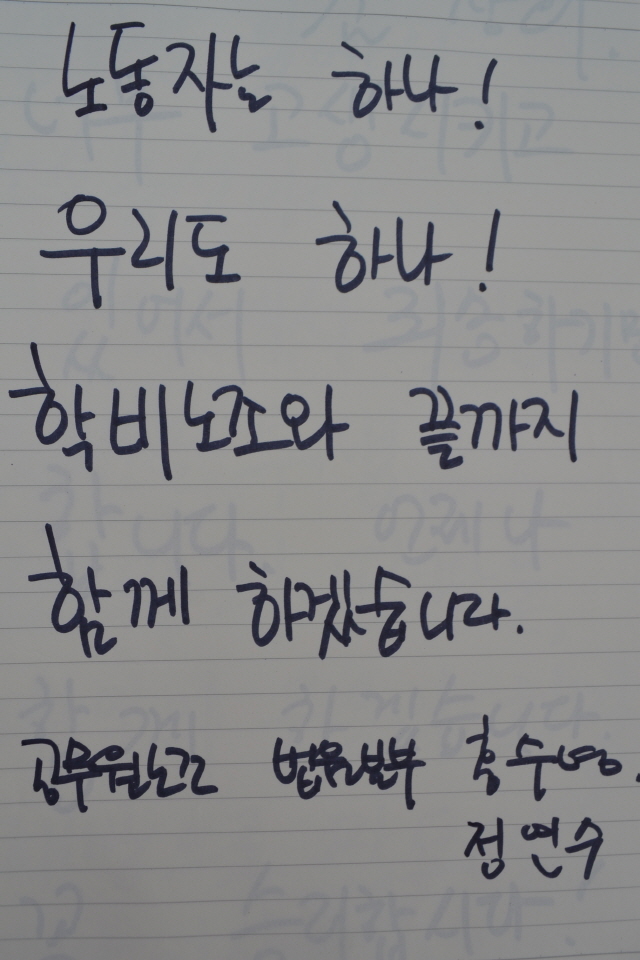 노동자는 하나!
우리도 하나!
학비노조와 끝까지
함께 하겠습니다.
공무원노조 법원본부 홍수영.
정연수